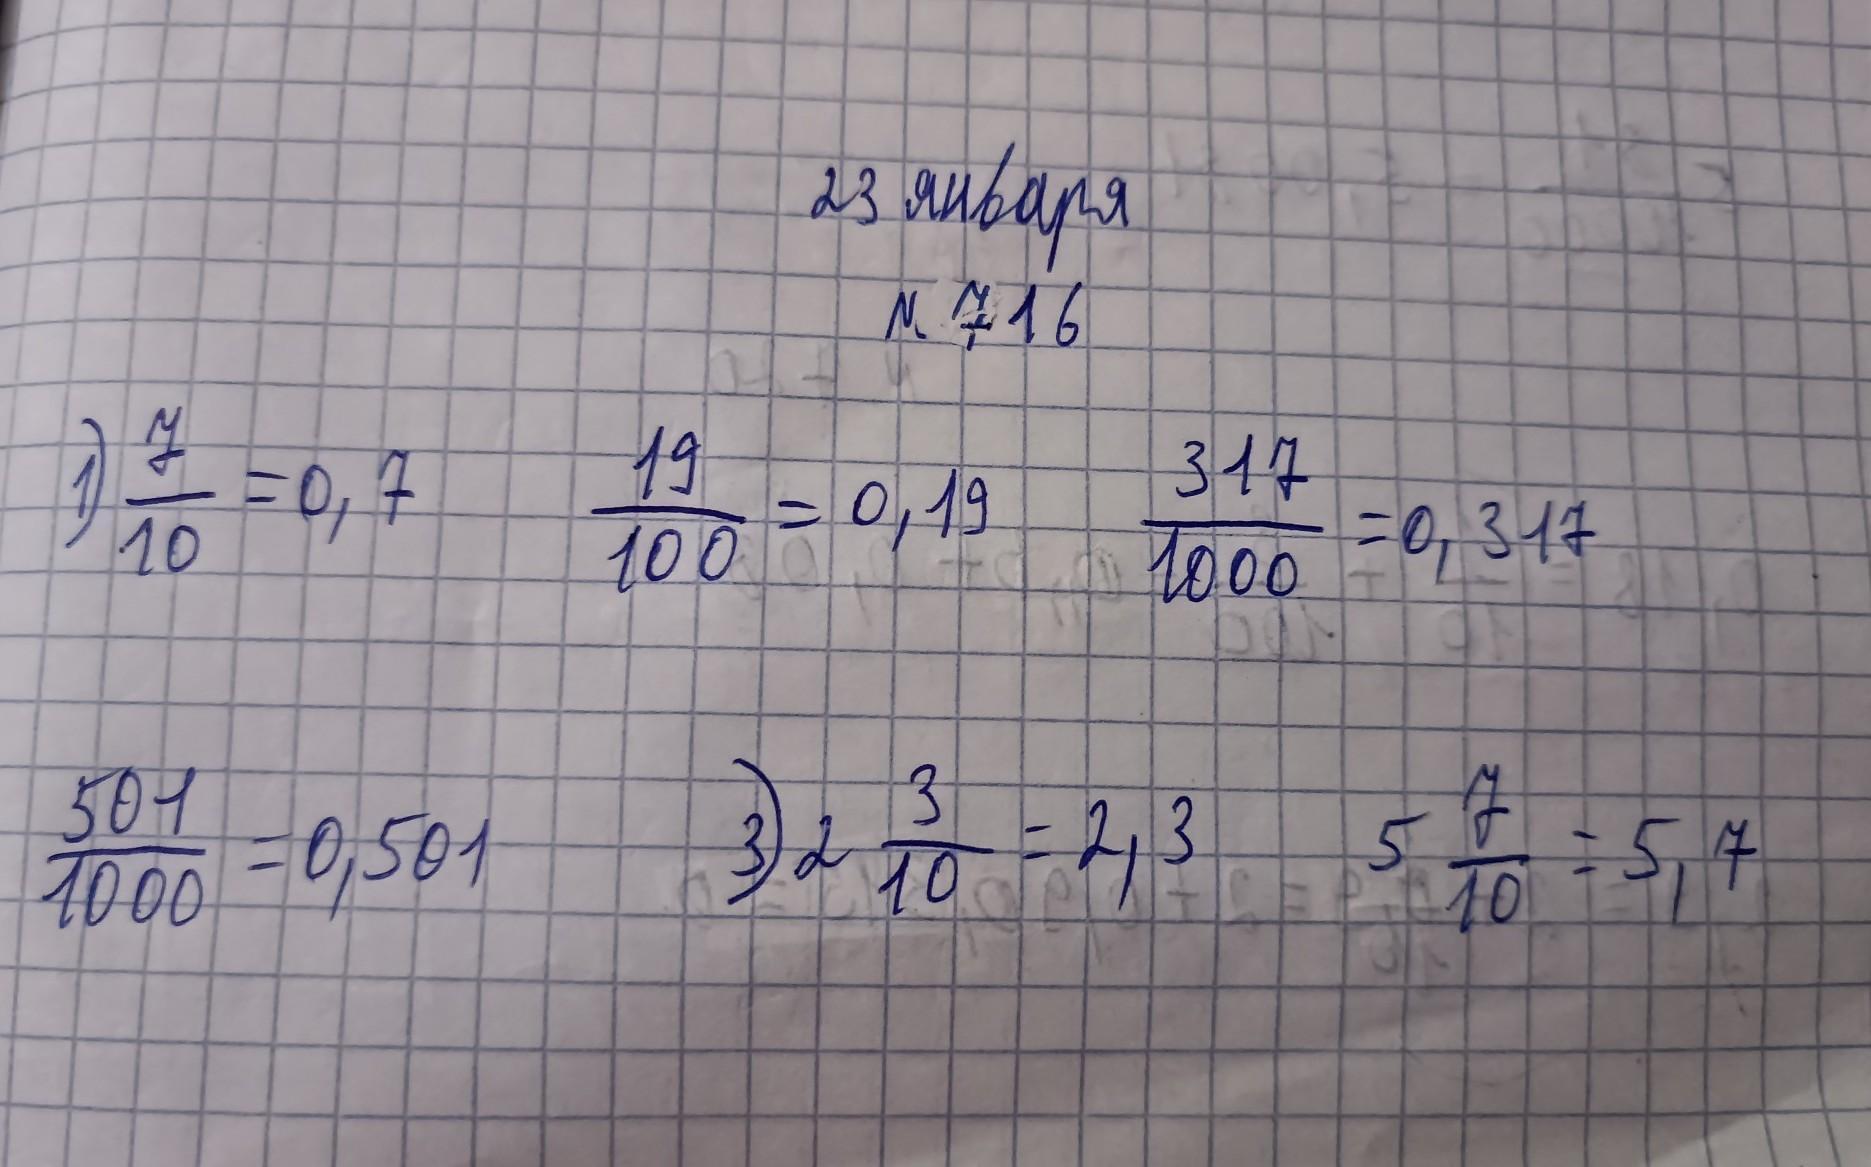 23 января
N. 716
1) 7/10 = 0,7 19/100 = 0,19 317/1000 = 0,317
501/1000 = 0,501 3) 2 3/10 = 2,3 5 7/10 = 5,7